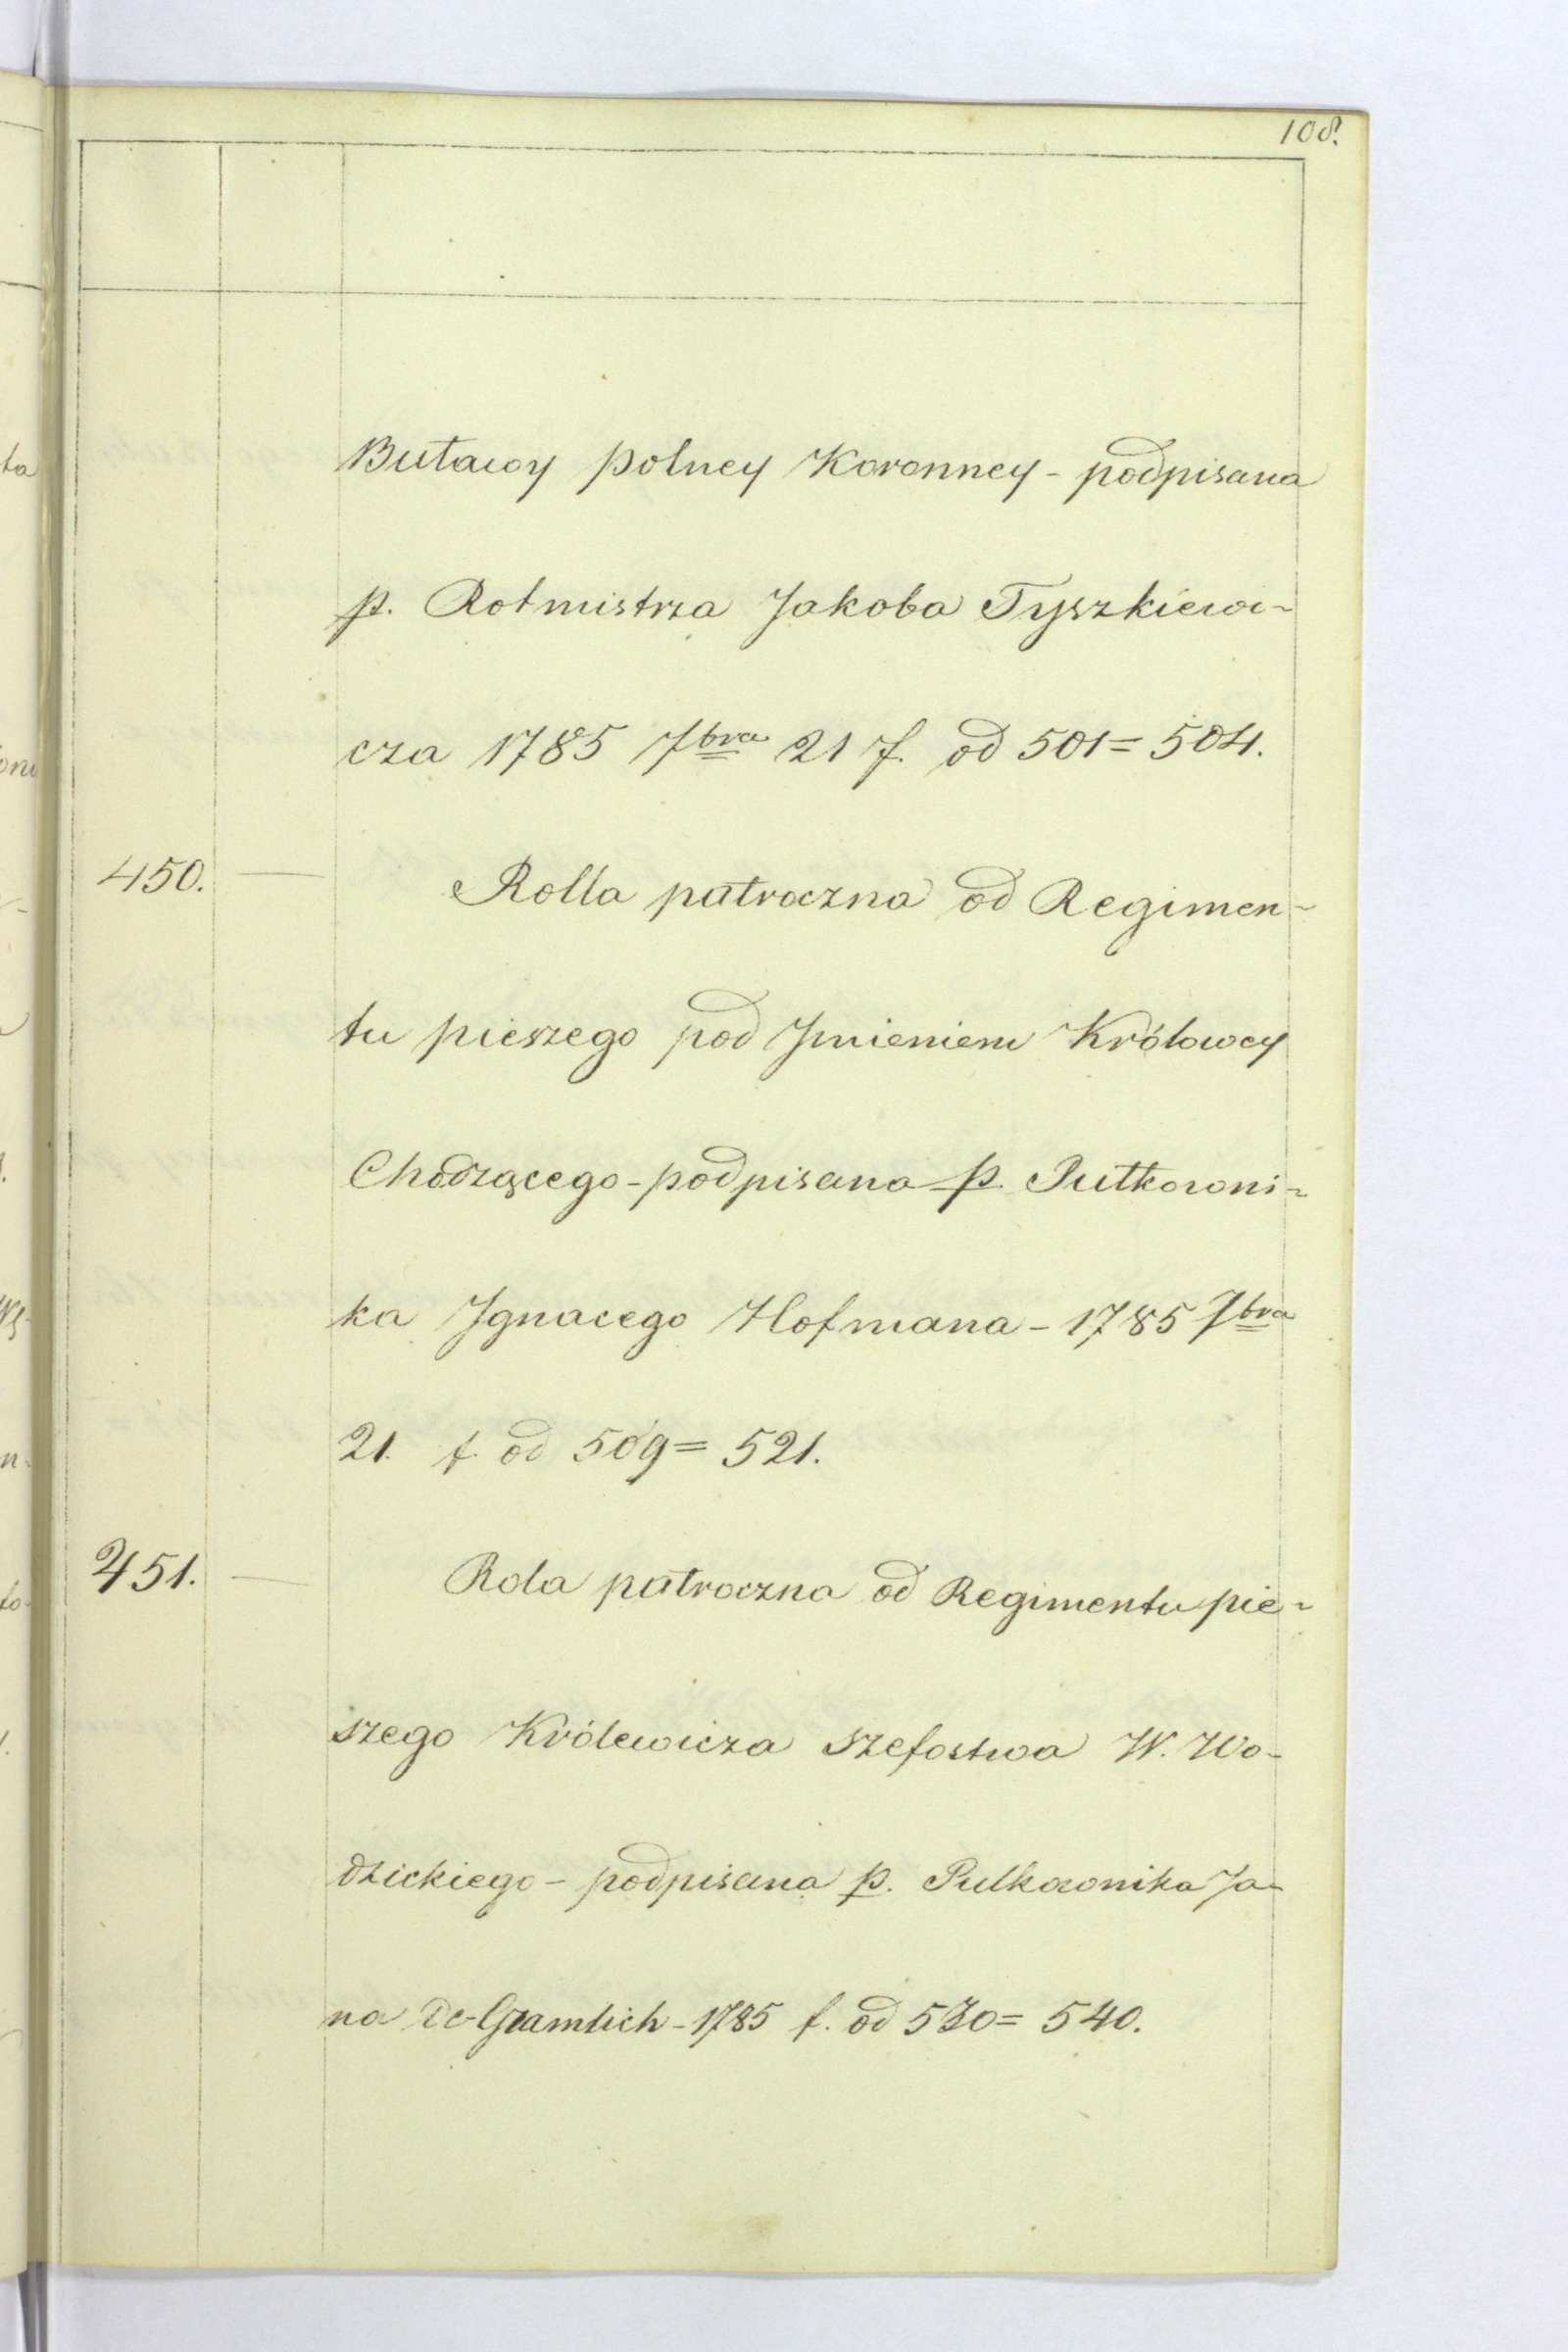 108.
Buławy polney Koronney - podpisana
p. Rotmistrza Jakoba Tyszkiewi-
cza 1785 7bra 21 f. od 501=504.
450. — Rolla pułroczna od Regimen-
tu pieszego pod Jmieniem Królowey
Chodzącego - podpisana p. Pułkowni-
ka Jgnacego Hofmana - 1785 7bra
21. f. od 509=521.
451. — Rola pułroczna od Regimentu pie-
szego Królewicza Szefostwa W. Wo-
dzickiego - podpisana p. Pulkownika Ja-
na De-Gramlich - 1785 f. od 530=540.